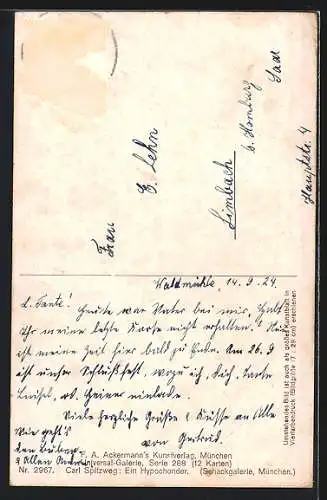 Frau
E. Lehn
Limbach
b. Homburg
Saar
Hauptstr. 4
Waldmühle, 14.9.24.
L. Tante! Heute war Vater bei mir, Habt
Ihr meine letzte Karte nicht erhalten? Nun
ist meine Zeit hier bald zu Ende. Am 26.9
ist unser Schlußfest, wozu ich Dich, Tante
Luisel, u. Heiner einlade.
Viele herzliche Grüße & Küsse an Alle
von Gertrud.
Wie geht's
den
& Allen
F. A. Ackermann's Kunstverlag, München
Universal-Galerie, Serie 288 (12 Karten)
Nr. 2967. Carl Spitzweg: Ein Hypochonder. (Schackgalerie, München.)
Umstehendes Bild ist auch als großes Kunstblatt in
Vierfarbendruck (Bildgröße 7 : 28 cm) erschienen